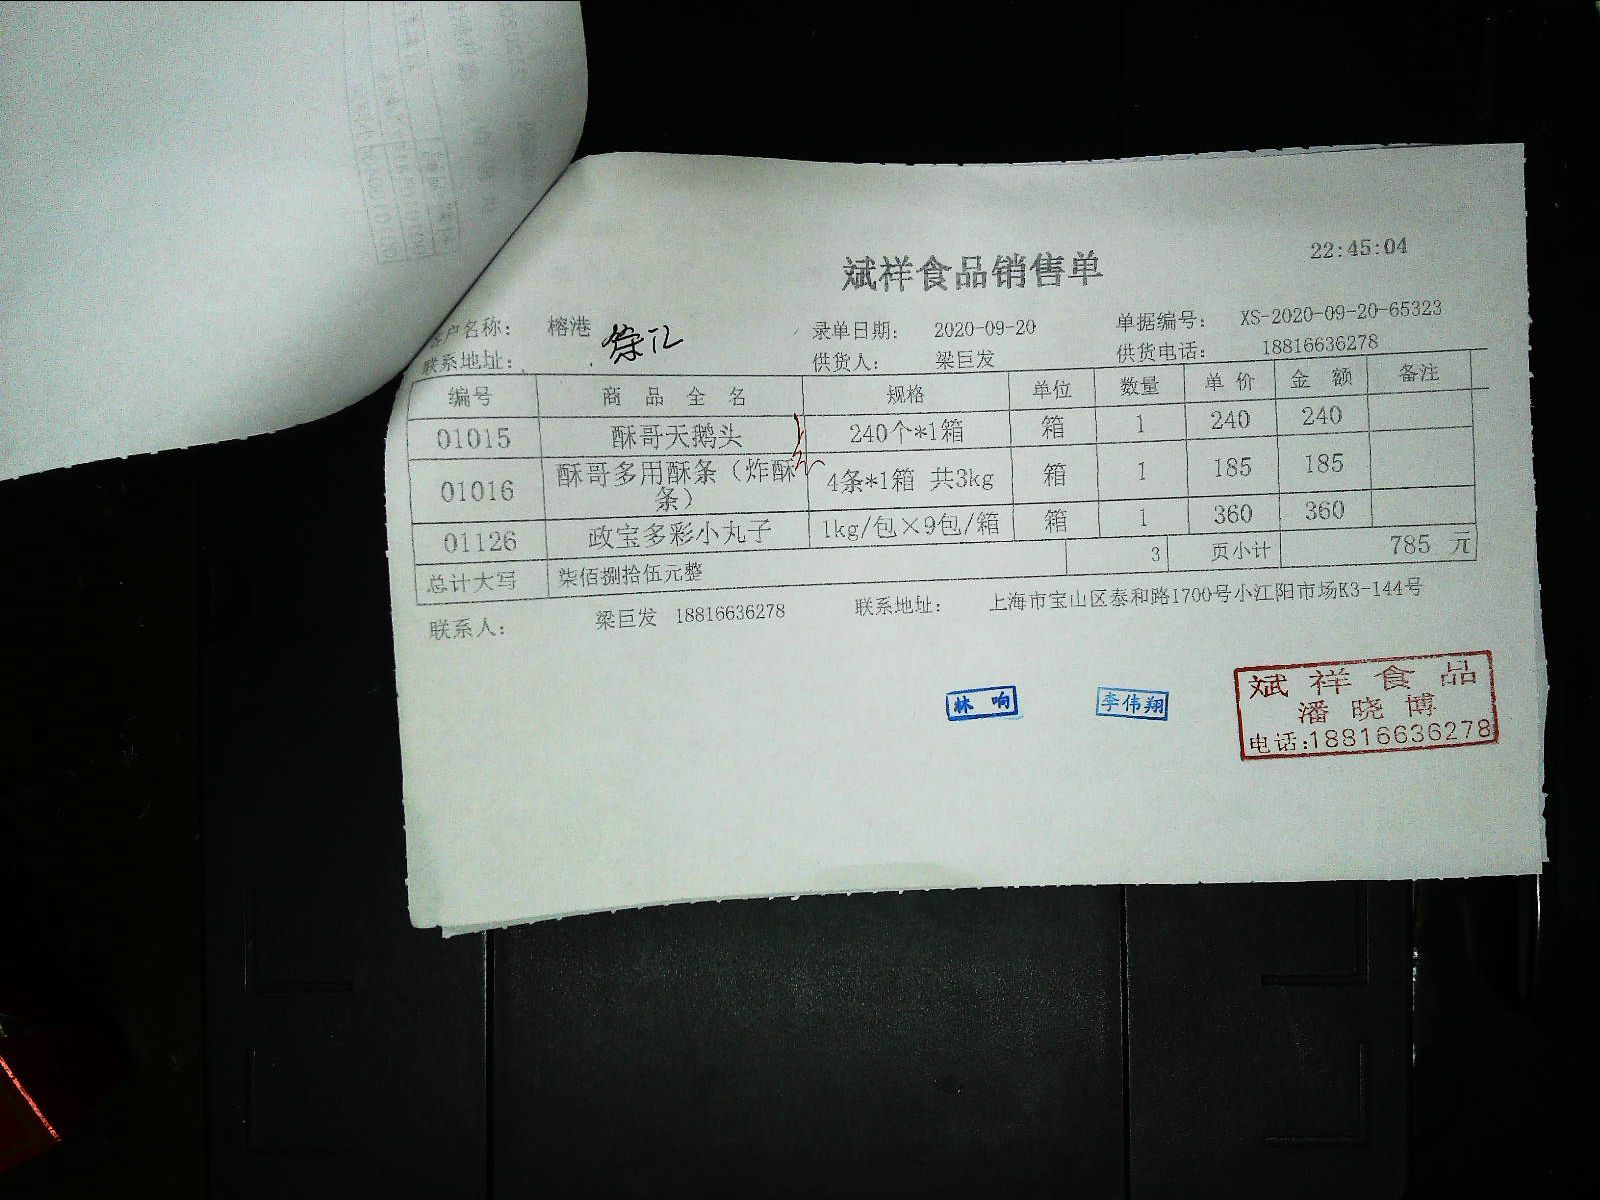 斌祥食品销售单
22:45:04
客户名称： 榕港 徐汇 录单日期： 2020-09-20 单据编号： XS-2020-09-20-65323
联系地址： 供货人： 梁巨发 供货电话： 18816636278
编号 商品全名 规格 单位 数量 单价 金额 备注
01015 酥哥天鹅头 240个*1箱 箱 1 240 240
01016 酥哥多用酥条（炸酥条） 4条*1箱 共3kg 箱 1 185 185
01126 政宝多彩小丸子 1kg/包×9包/箱 箱 1 360 360
总计大写 柒佰捌拾伍元整 3 页小计 785 元
联系人： 梁巨发 18816636278 联系地址： 上海市宝山区泰和路1700号小江阳市场K3-144号
林响 李伟翔
斌祥食品
潘晓博
电话:18816636278